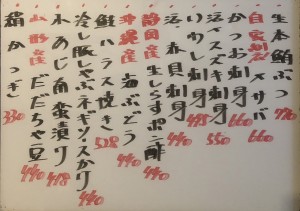 生本鮪ぶつ 770
自家製〆サバ 660
かつお刺身 660
活〆スズキ刺身 550
いわし刺身 495
活赤貝刺身 440
静岡産生しらすポン酢 440
沖縄産海ぶどう 440
鮭ハラス焼き 528
冷し豚しゃぶネギソースかけ 440
小あじ南蛮漬け 418
山形産だだちゃ豆 440
絹かつぎ 330